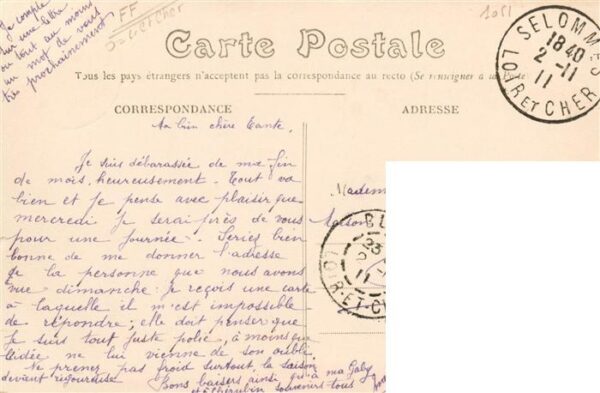 Je compte
sur une lettre
ou tout au moins
un mot de vous
très prochainement
FF
1051
Carte Postale
Tous les pays étrangers n'acceptent pas la correspondance au recto (Se renseigner à la Poste
CORRESPONDANCE
ADRESSE
SELOMMES
18 40
2-11
11
LOIR ET CHER
Ma bien chère Tante,
Je suis débarassée de ma fin
de mois, heureusement. Tout va
bien et je pense avec plaisir que
mercredi je serai près de vous
pour une journée. Seriez bien
bonne de me donner l'adresse
de la personne que nous avons
vue dimanche: je reçois une carte
à laquelle il m'est impossible
de répondre; elle doit penser que
je suis tout juste polie, à moins que
l'idée ne lui vienne de son oubli.
Ne prenez pas froid surtout la saison
devant rigoureuse
Bons baisers ainsi qu'à ma Gaby
et souvenirs tous
Madem
Maison
BL
23
11
LOIR-ET-CH